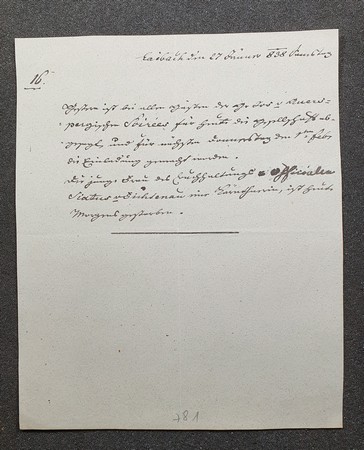 Laibach den 27 Jänner 838 Samstag
16.
Gestern ist bei allen Gästen der Auers-
pergischen Soirées für heute die Gesellschaft ab-
gesagt, und für nächsten Donnerstag den 1ten Feb.
die Einladung gemacht worden.
Die junge Frau des Buchhaltungs Officialen
v Sichtenau eine Kärntnerin, ist heute
Morgens gestorben.
781